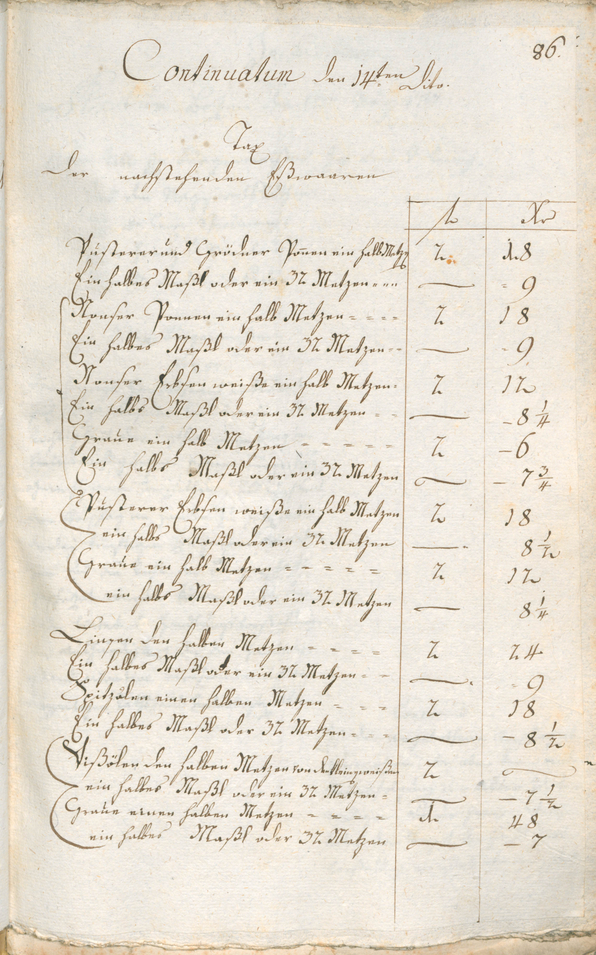 86.
Continuatum den 14ten Dito.
Tax
der nachstehenden Eßwaaren
f Xr
Pusterer und Grödner Ponnen ein halb Metzen 2 18
Ein halbes Maßl oder ein 32 Metzen — 9
Nonser Ponnen ein halb Metzen 2 18
Ein halbes Maßl oder ein 32 Metzen — 9
Nonser Erbsen weiße ein halb Metzen 2 12
Ein halbs Maßl oder ein 32 Metzen — 8 1/4
Graue ein halb Metzen 2 6
Ein halbs Maßl oder ein 32 Metzen — 7 3/4
Pusterer Erbsen weiße ein halb Metzen 2 18
ein halbs Maßl oder ein 32 Metzen — 8 1/2
Graue ein halb Metzen 2 12
ein halbs Maßl oder ein 32 Metzen — 8 1/4
Linsen den halben Metzen 2 24
Ein halbes Maßl oder ein 32 Metzen — 9
einen halben Metzen 2 18
Ein halbes Maßl oder 32 Metzen — 8 1/2
den halben Metzen von weißen 2 —
ein halbes Maßl oder ein 32 Metzen — 7 1/2
Graue einen halben Metzen 1 48
ein halbes Maßl oder 32 Metzen — 7